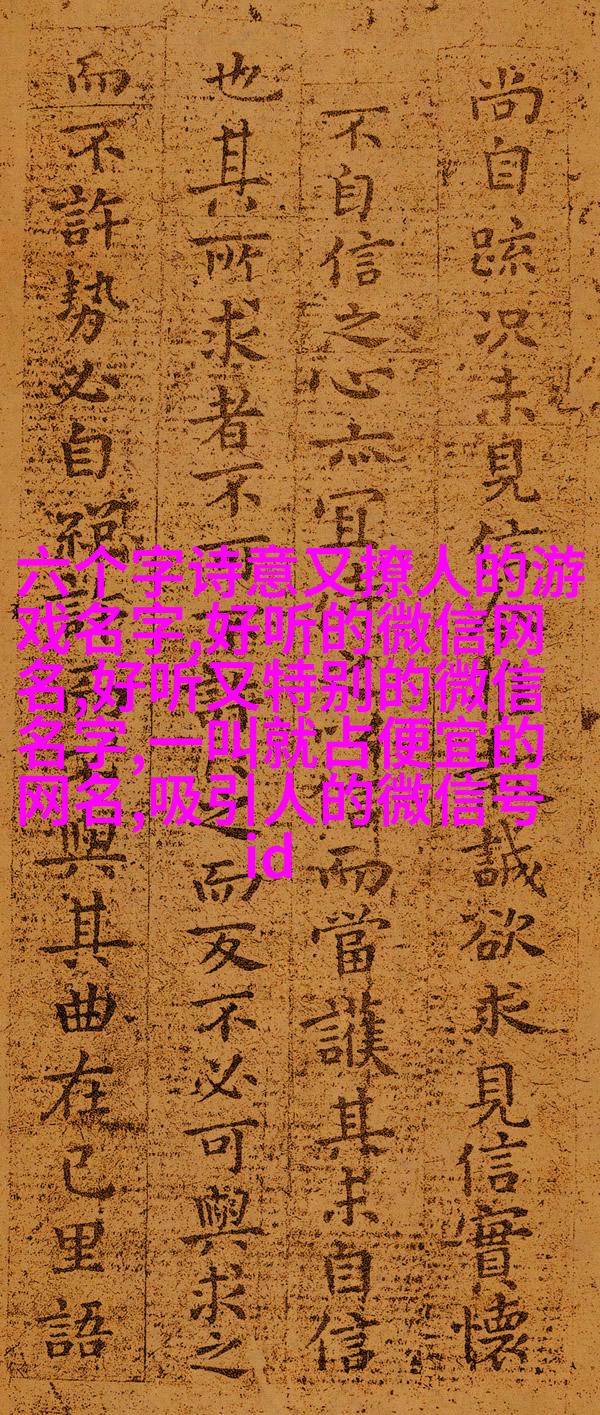 六个字诗意又撩人的游
戏名字,好听的微信网
名,好听又特别的微信
名字,一叫就占便宜的
网名,吸引人的微信号
id
尚自疏况未見信誠欲求見信實懷
不自信之心亦宜而當護其未自信
也其所求者不而反不必可與求之
而不許勢必自與其曲在己里語